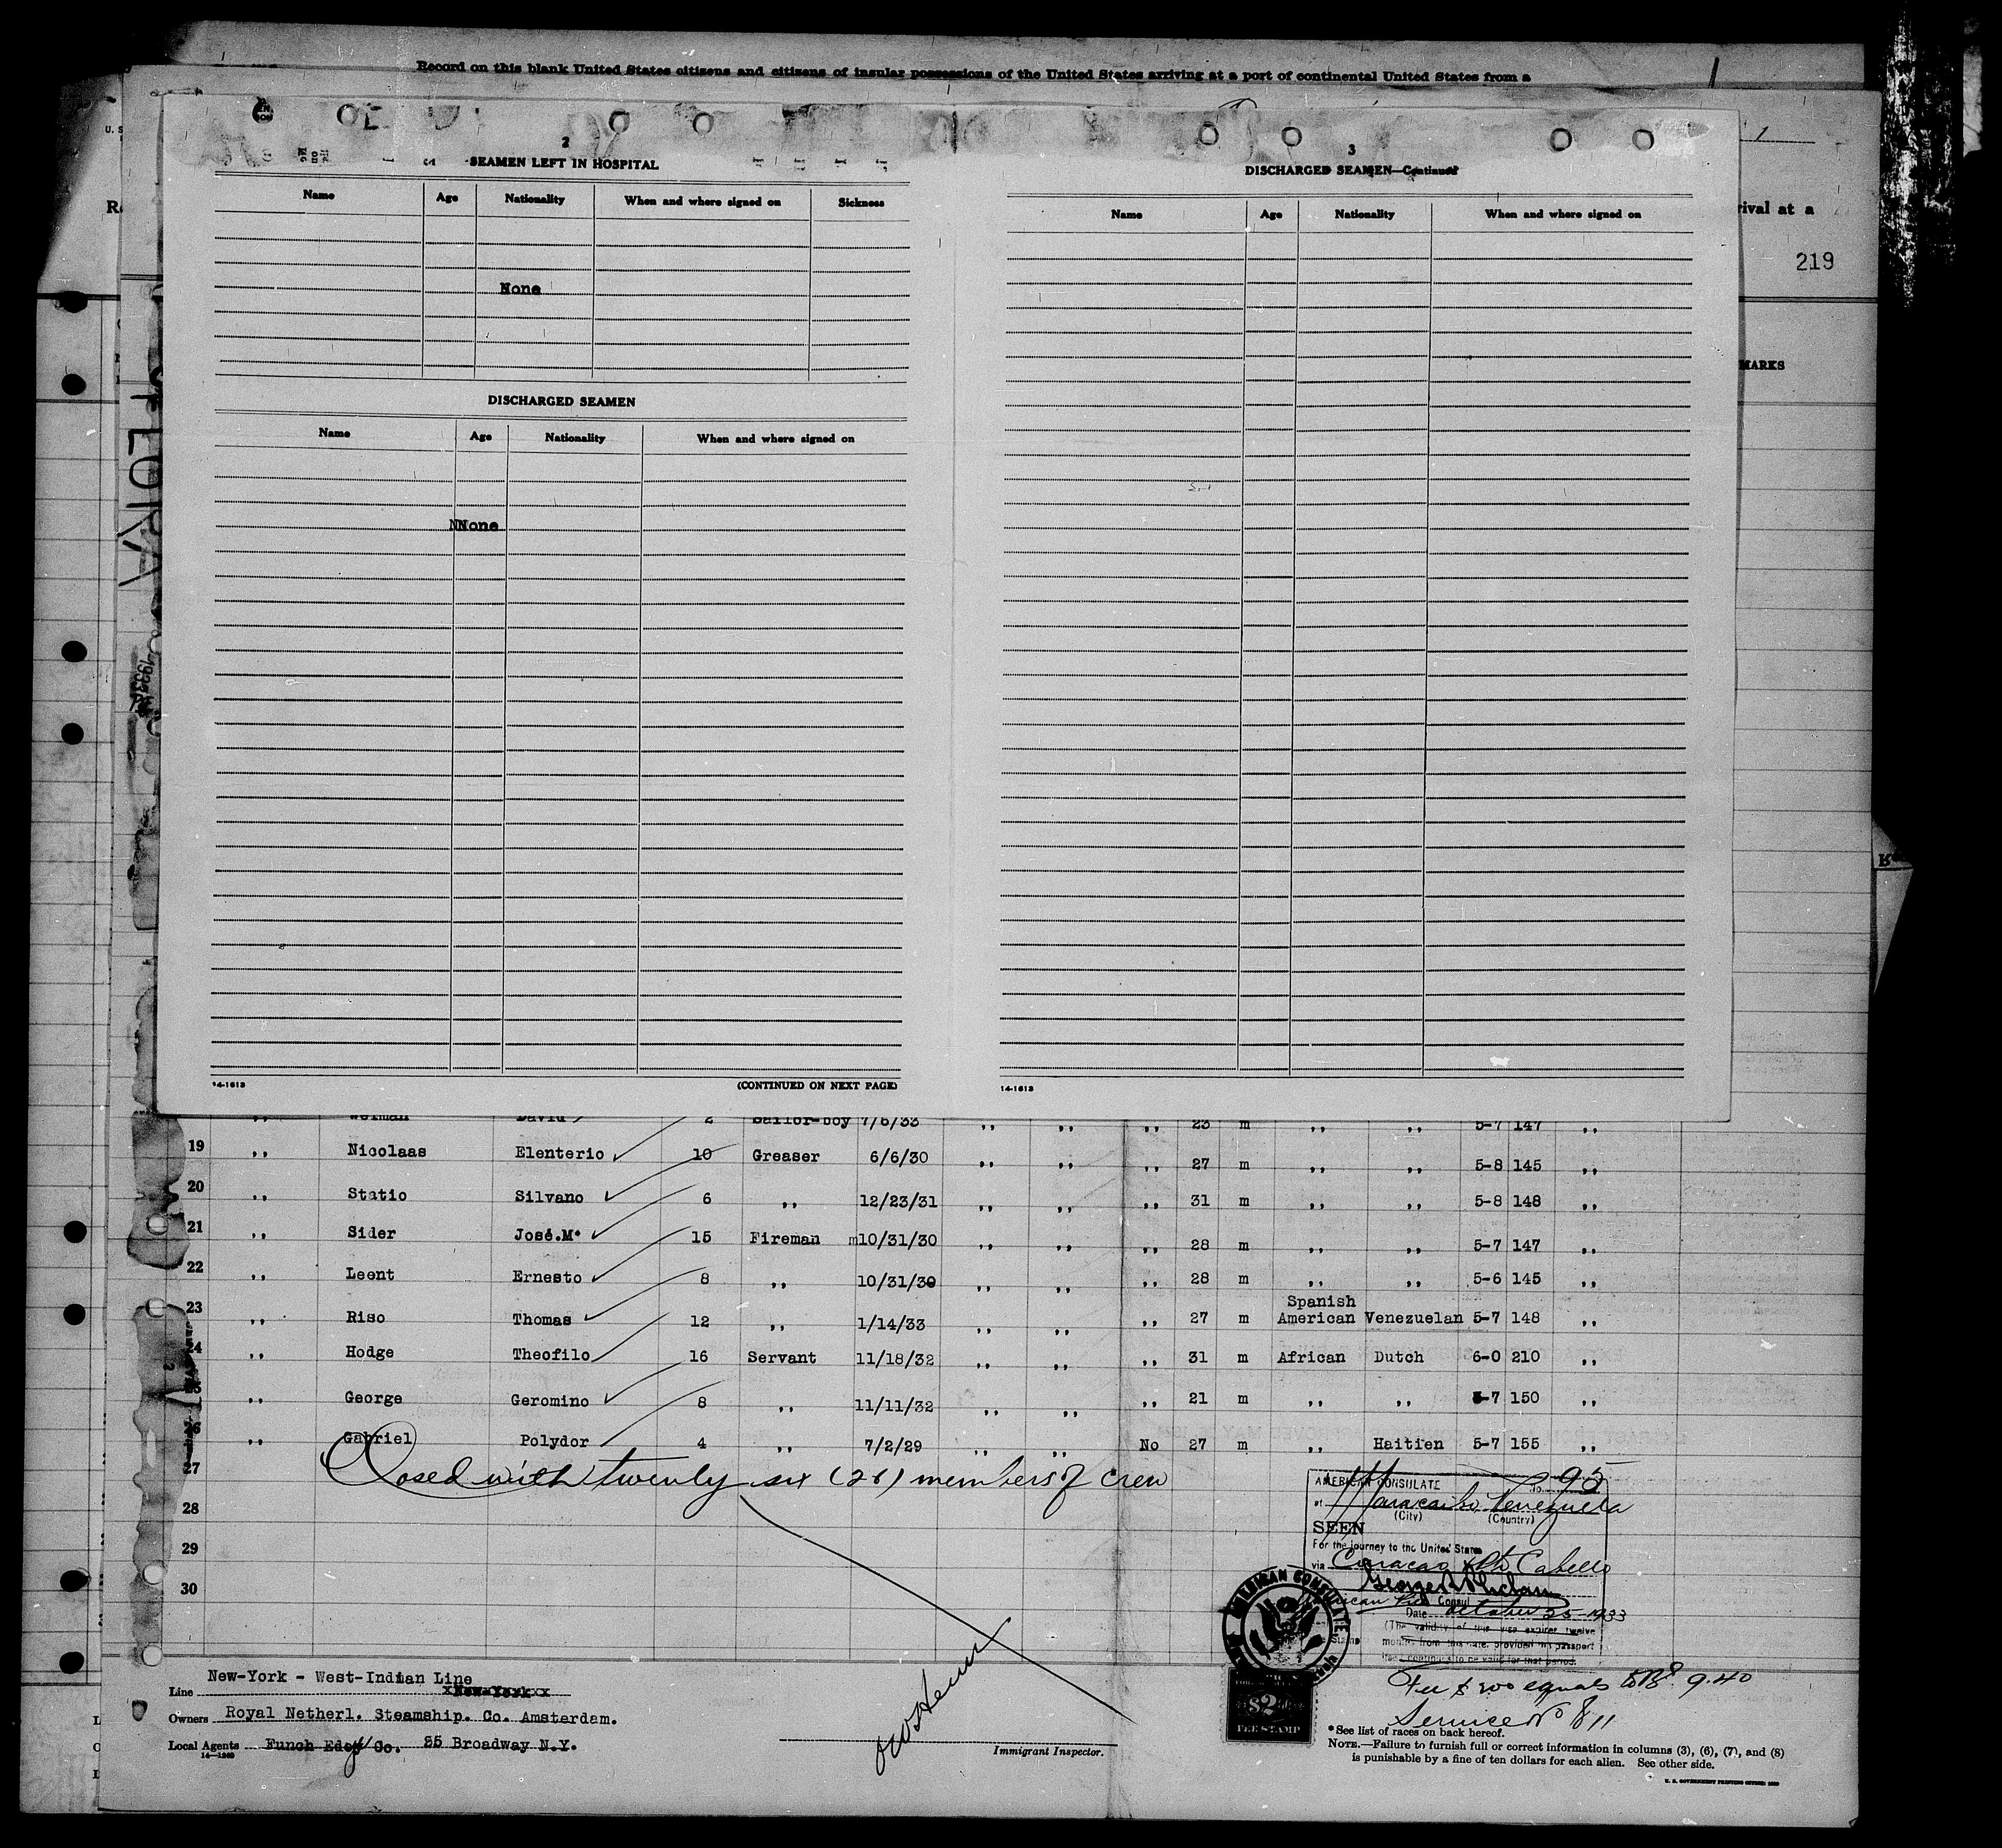 Record on this blank United States citizens and citizens of insular possessions of the United States arriving at a port of continental United States from a
U. S
1
R
rival at a
219
MARKS
FLORA
2
SEAMEN LEFT IN HOSPITAL
Name Age Nationality When and where signed on Sickness
None
DISCHARGED SEAMEN
Name Age Nationality When and where signed on
NNone
14-1613 (CONTINUED ON NEXT PAGE)
3
DISCHARGED SEAMEN—Continued
Name Age Nationality When and where signed on
14-1613
,, Weiman David 2 Sailor-boy 7/6/33 ,, ,, ,, 23 m ,, ,, 5-7 147 ,,
19 ,, Nicolaas Elenterio 10 Greaser 6/6/30 ,, ,, ,, 27 m ,, ,, 5-8 145 ,,
20 ,, Statio Silvano 6 ,, 12/23/31 ,, ,, ,, 31 m ,, ,, 5-8 148 ,,
21 ,, Sider José.Mª 15 Fireman m10/31/30 ,, ,, ,, 28 m ,, ,, 5-7 147 ,,
22 ,, Leent Ernesto 8 ,, 10/31/30 ,, ,, ,, 28 m ,, ,, 5-6 145 ,,
23 ,, Riso Thomas 12 ,, 1/14/33 ,, ,, ,, 27 m Spanish American Venezuelan 5-7 148 ,,
24 ,, Hodge Theofilo 16 Servant 11/18/32 ,, ,, ,, 31 m African Dutch 6-0 210 ,,
,, George Geromino 8 ,, 11/11/32 ,, ,, ,, 21 m ,, ,, 5-7 150 ,,
,, Gabriel Polydor 4 ,, 7/2/29 ,, ,, No 27 m ,, Haitien 5-7 155 ,,
27 Closed with twenty six (26) members of crew
28
29
30
AMERICAN CONSULATE No. 95
at Maracaibo, Venezuela
(City) (Country)
SEEN
For the journey to the United States
via Curacao Pto Cabello
American Vice Consul
Date October 25-1933
(The validity of this visa expires twelve
months from this date, provided the passport
continues to be valid for that period.
AMERICAN CONSULATE
$2
FEE STAMP
Fee $2.00 equals to Bs 9.40
Service No 811
New-York - West-Indian Line
Line xNew-Yorkxx
Owners Royal Netherl. Steamship. Co. Amsterdam.
Local Agents Funch Edey Co. 25 Broadway N.Y.
14-1240
Immigrant Inspector.
*See list of races on back hereof.
NOTE.—Failure to furnish full or correct information in columns (3), (6), (7), and (8)
is punishable by a fine of ten dollars for each alien. See other side.
U. S. GOVERNMENT PRINTING OFFICE: